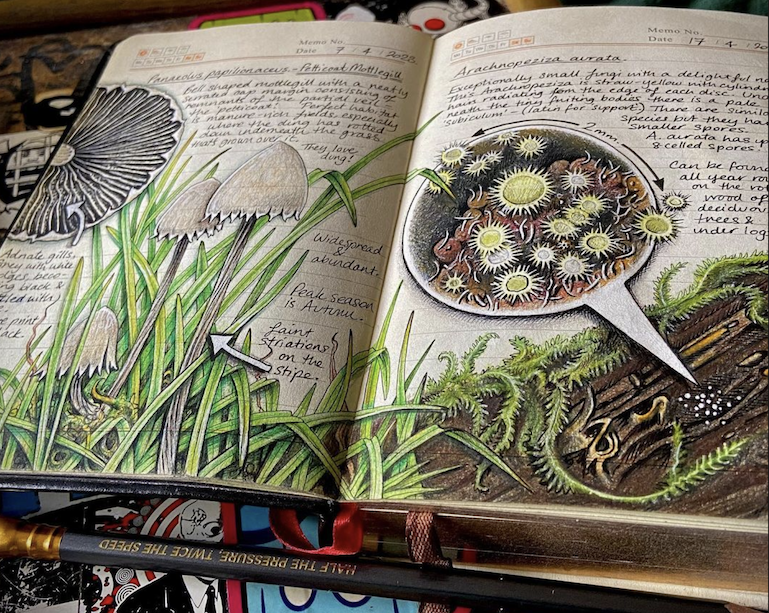 Memo No.
Date 7 / 4 / 2023
Panaeolus papilionaceus - Petticoat Mottlegill
Bell shaped mottlegill with a neatly
cap margin consisting of
remnants of the partial veil -
the petticoat! habitat
manure-rich fields especially
where the dung has rotted
down underneath the grass
that's grown over. They love
dung!
Adnate gills,
grey with white
edges
black &
with
print
black.
Widespread
&
abundant.
Peak season
is Autumn.
Faint
striations
on the
stipe.
Memo No.
Date 17 / 4 /
Arachnopeziza aurata.
Exceptionally small fungi with a delightful na
This Arachnopeziza is straw-yellow with cylindr
hairs radiating from the edge of each disc. Under
neath the tiny fruiting bodies there is a pale
'subiculum' - (latin for support!) There are simila
species but they ha
smaller spores.
A. aurata has up
8 celled spores.
2mm.
Can be foun
all year ro
on the rot
wood of
deciduo
trees &
under log
HALF THE PRESSURE, TWICE THE SPEED